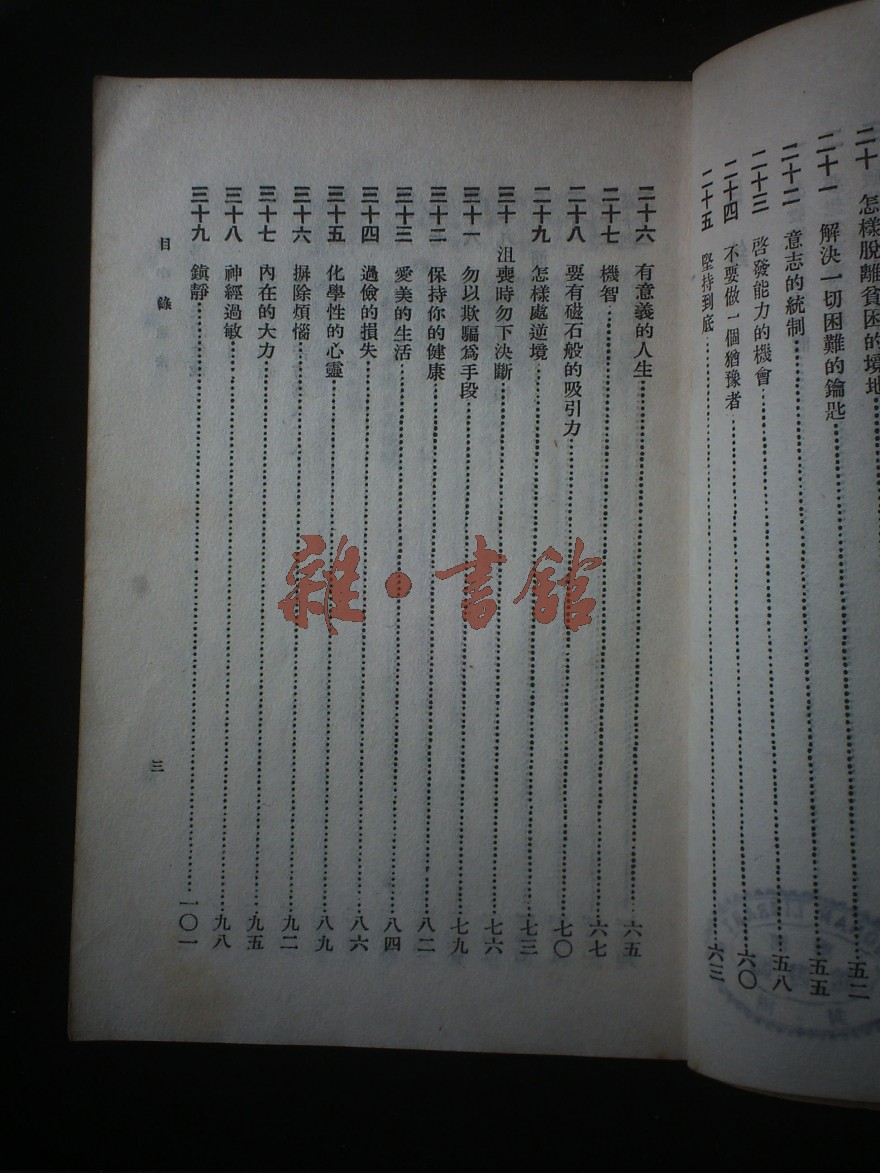 二十 怎樣脫離貧困的境地……五二
二十一 解決一切困難的鑰匙……五五
二十二 意志的統制……五八
二十三 啓發能力的機會
二十四 不要做一個猶豫者……六〇
二十五 堅持到底……六三
二十六 有意義的人生……六五
二十七 機智……六七
二十八 要有磁石般的吸引力……七〇
二十九 怎樣處逆境……七三
三十 沮喪時勿下決斷……七六
三十一 勿以欺騙爲手段……七九
三十二 保持你的健康……八二
三十三 愛美的生活……八四
三十四 過儉的損失……八六
三十五 化學性的心靈……八九
三十六 摒除煩惱……九二
三十七 內在的大力……九五
三十八 神經過敏……九八
三十九 鎮靜……一〇一
目錄
三
雜·書館